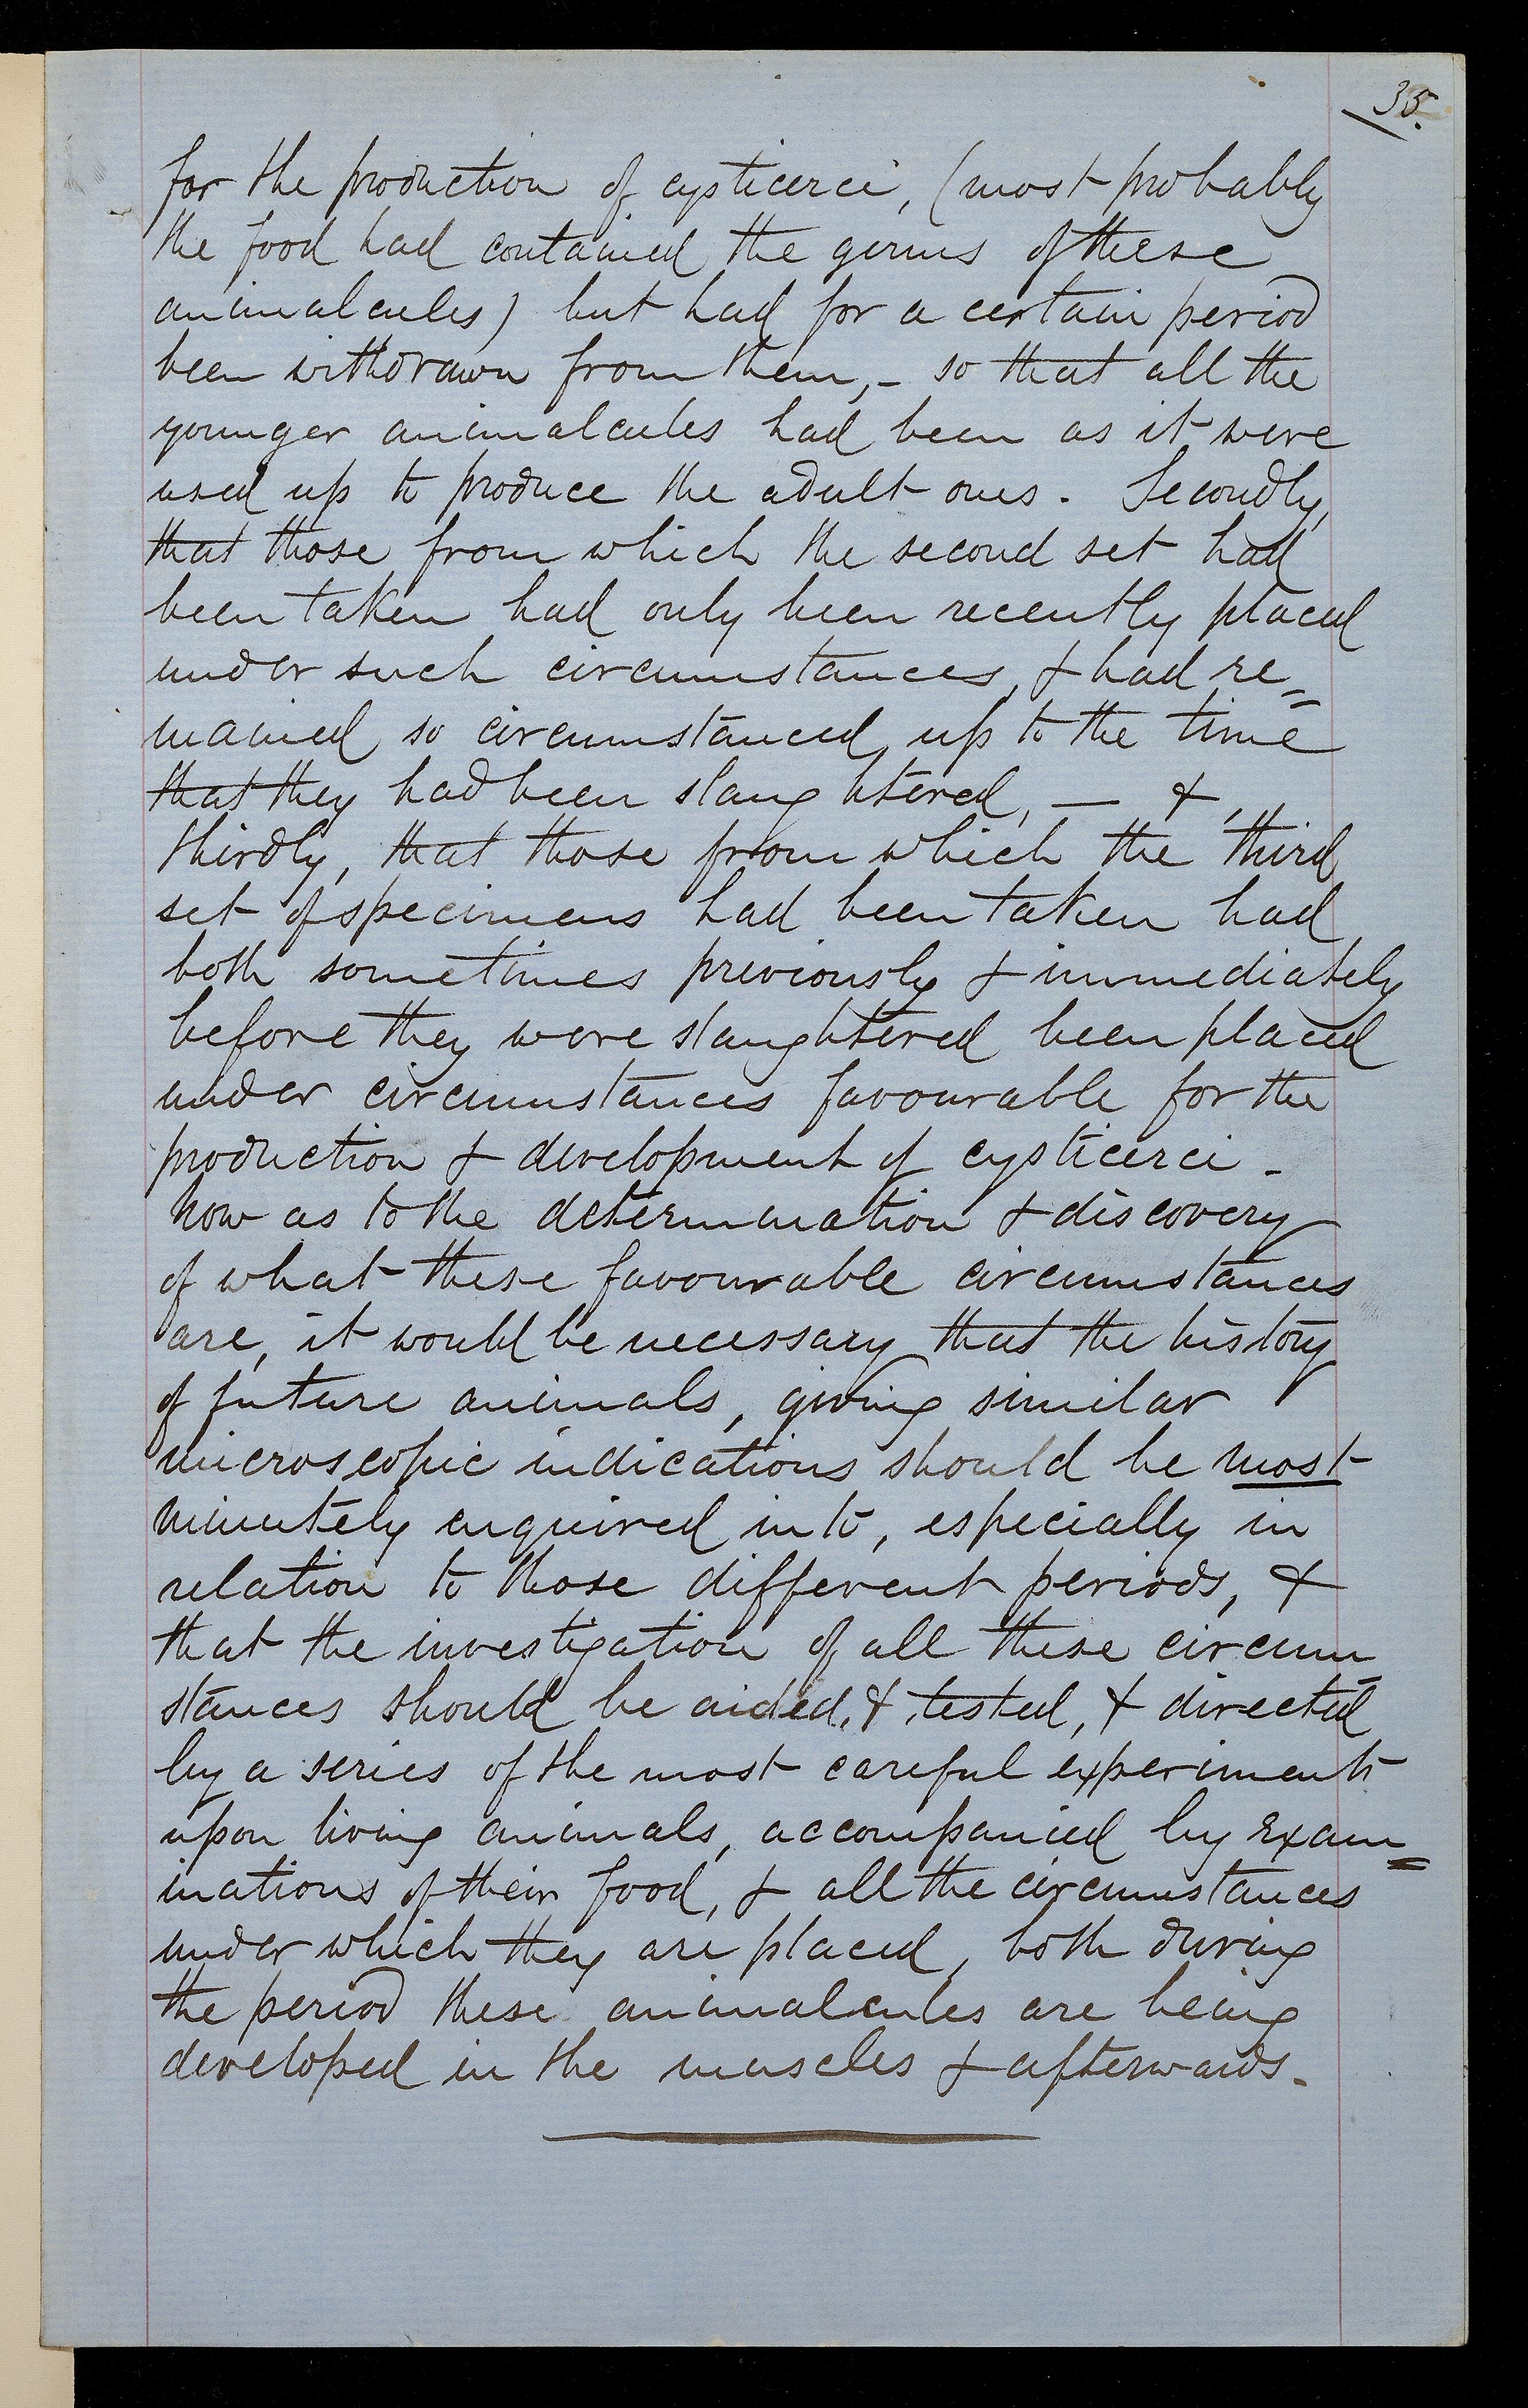 35.
for the production of cysticerci, (most probably
the food had contained the germs of these
animalcules) but had for a certain period
been withdrawn from them, - so that all the
younger animalcules had been as it were
used up to produce the adult ones. Secondly,
that those from which the second set had
been taken had only been recently placed
under such circumstances, & had re=
mained so circumstanced up to the time
that they had been slaughtered, — &,
thirdly, that those from which the third
set of specimens had been taken had
both sometimes previously & immediately
before they were slaughtered been placed
under circumstances favourable for the
production & development of cysticerci -
Now as to the determination & discovery
of what these favourable circumstances
are, it would be necessary that the history
of future animals, giving similar
microscopic indications should be most
minutely enquired into, especially in
relation to those different periods, &
that the investigation of all these circum=
stances should be aided, & tested, & directed
by a series of the most careful experiments
upon living animals, accompanied by exam=
inations of their food, & all the circumstances
under which they are placed, both during
the period these animalcules are being
developed in the muscles & afterwards.